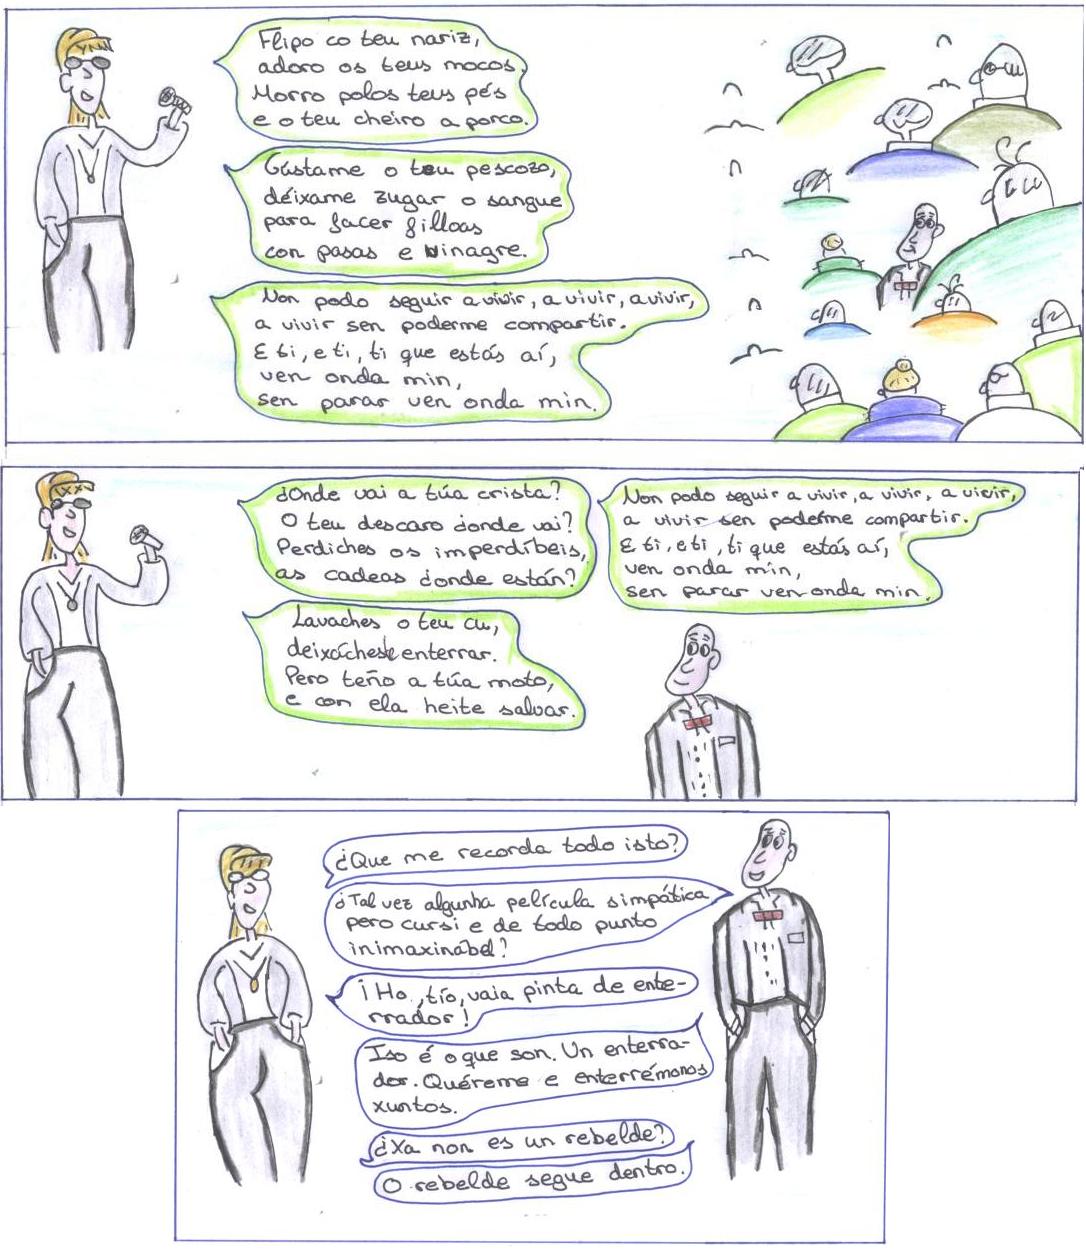 Flipo co teu nariz,
adoro os teus mocos.
Morro polos teus pés
e o teu cheiro a porco.
Gústame o teu pescozo,
déixame zugar o sangue
para facer filloas
con pasas e vinagre.
Non podo seguir a vivir, a vivir, a vivir,
a vivir sen poderme compartir.
E ti, e ti, ti que estás aí,
ven onda min,
sen parar ven onda min.
¿Onde vai a túa crista?
O teu descaro ¿onde vai?
Perdiches os imperdíbeis,
as cadeas ¿onde están?
Lavaches o teu cu,
deixácheste enterrar.
Pero teño a túa moto,
e con ela heite salvar.
Non podo seguir a vivir, a vivir, a vivir,
a vivir sen poderme compartir.
E ti, e ti, ti que estás aí,
ven onda min,
sen parar ven onda min.
¿Que me recorda todo isto?
¿Tal vez algunha película simpática
pero cursi e de todo punto
inimaxinábel?
¡Ho, tío, vaia pinta de ente-
rrador!
Iso é o que son. Un enterra-
dor. Quéreme e enterrémonos
xuntos.
¿Xa non es un rebelde?
O rebelde segue dentro.